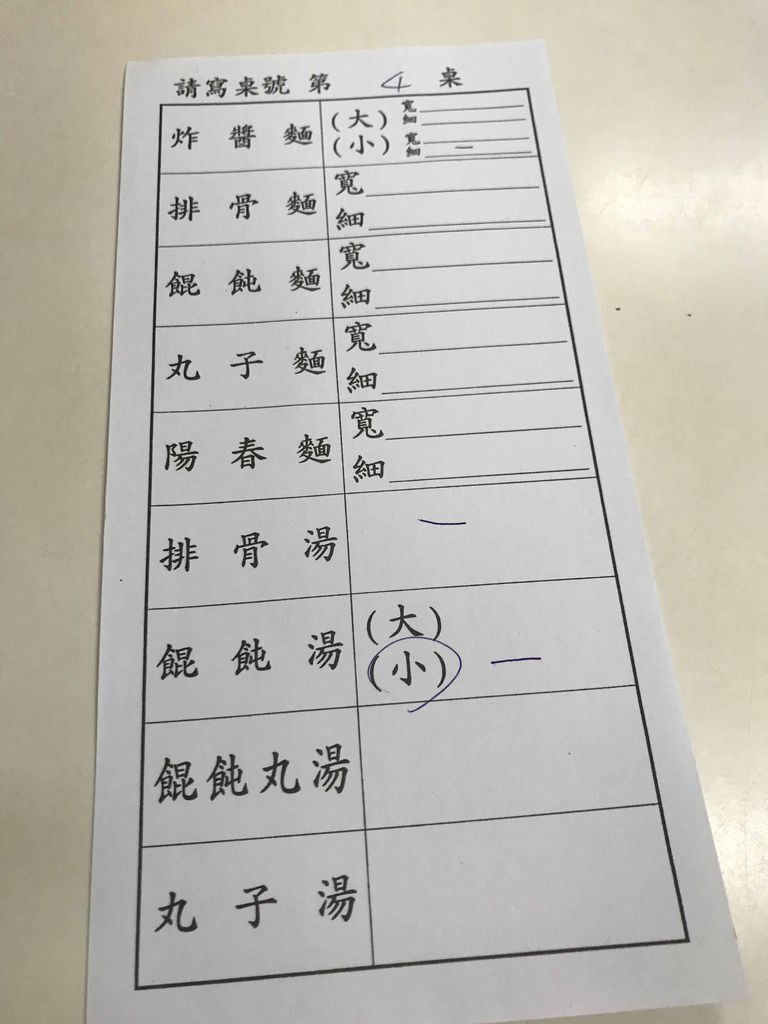 請寫桌號 第 4 桌
炸醬麵 (大) 寬
細
(小) 寬
細 一
排骨麵 寬
細
餛飩麵 寬
細
丸子麵 寬
細
陽春麵 寬
細
排骨湯 一
餛飩湯 (大)
(小) 一
餛飩丸湯
丸子湯